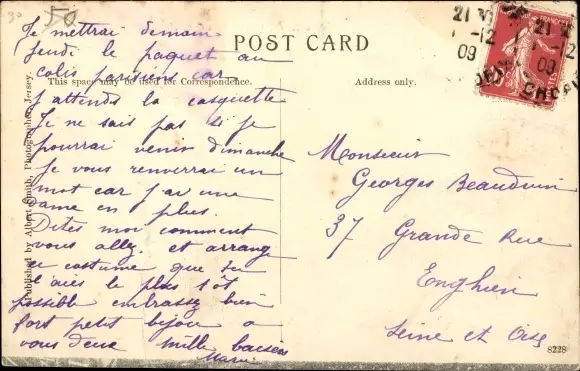 50
POST CARD
This space may be used for Correspondence.
Address only.
21 30
-12
09
CHERBOURG
Je mettrai demain
Jeudi le paquet au
colis parisiens car
j'attends la casquette
Je ne sais pas si je
pourrai venir dimanche
Je vous renverrai un
mot car j'ai une
dame en plus.
Dites moi comment
vous allez. et arrange
ce costume que tu
l'aies le plus tôt
possible embrassez bien
fort petit bijou a
vous deux mille baisers
Marie
Monsieur
Georges Beauduin
37 Grande Rue
Enghien
Seine et Oise
Published by Albert Smith, Photographer, Jersey.
8228